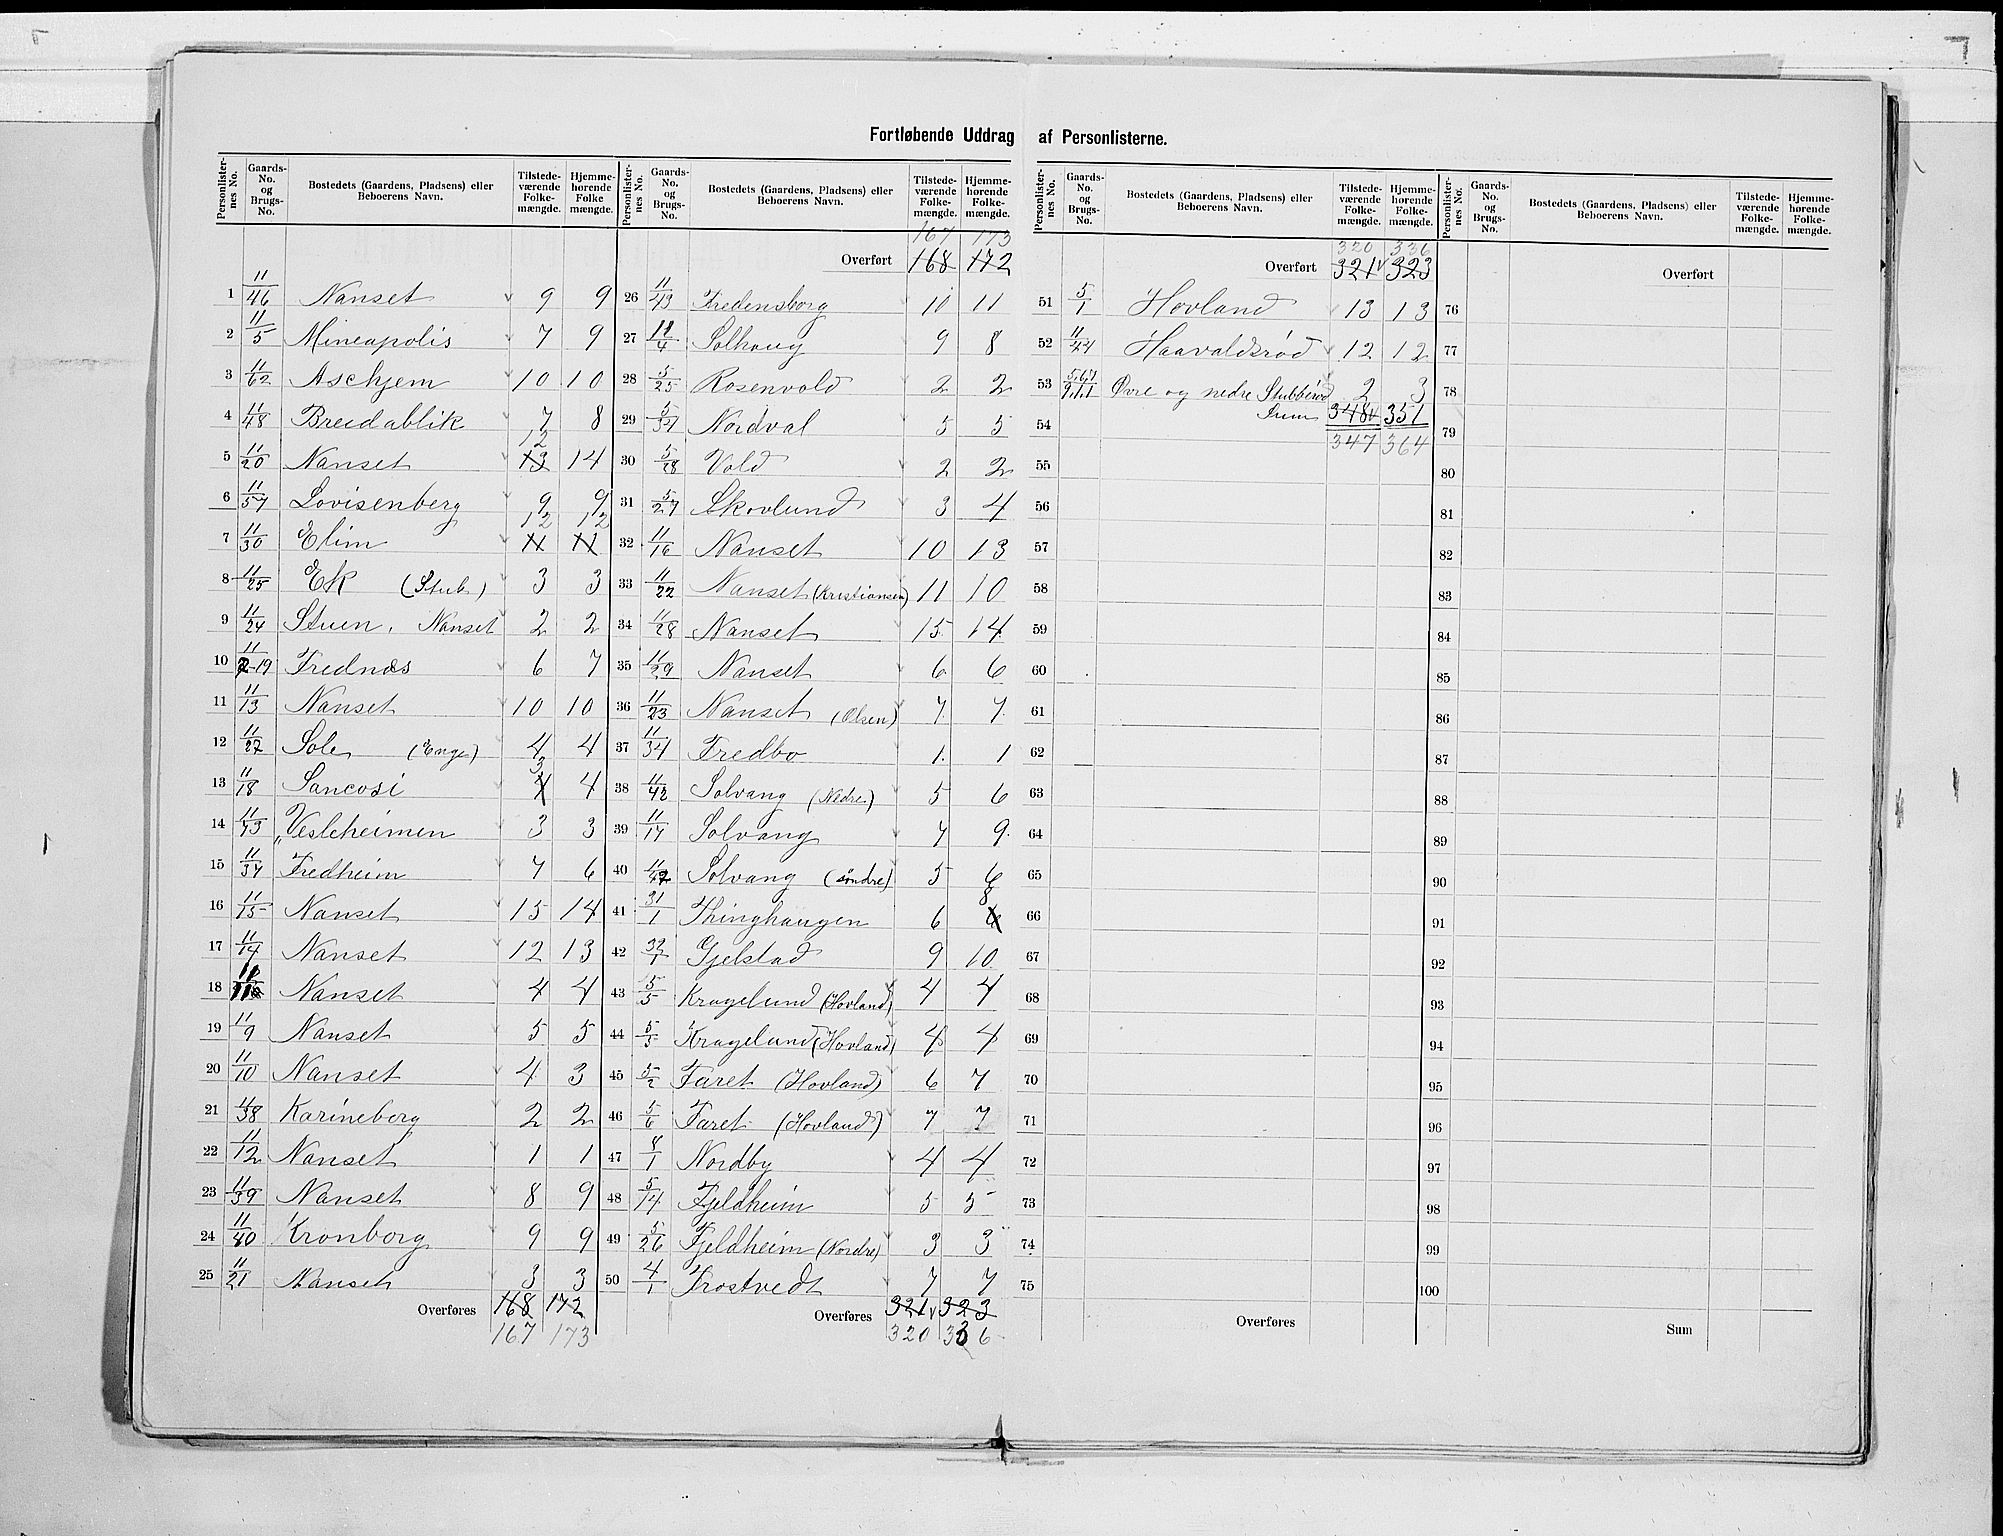 Fortløbende Uddrag af Personlisterne.
Personlister-nes No. Gaards-No. og Brugs-No. Bostedets (Gaardens, Pladsens) eller Beboerens Navn. Tilstede-værende Folke-mængde. Hjemme-hørende Folke mængde.
1 11/46 Nanset 9 9
2 11/5 Mineapolis 7 9
3 11/62 Aschjem 10 10
4 11/48 Breidablik 7 8
5 11/20 Nanset 12 13 14
6 11/57 Lovisenberg 9 9
7 11/30 Elim 12 11 12 11
8 11/25 Ek (Stub.) 3 3
9 11/24 Stuen, Nanset 2 2
10 11/2-19 Frednæs 6 7
11 11/13 Nanset 10 10
12 11/27 Sole (Enge) 4 4
13 11/18 Sancosi 3 4 4
14 11/73 Vesleheimen 3 3
15 11/37 Fredheim 7 6
16 11/15 Nanset 15 14
17 11/14 Nanset 12 13
18 Nanset 4 4
19 11/9 Nanset 5 5
20 11/10 Nanset 4 3
21 11/38 Karineborg 2 2
22 11/12 Nanset 1 1
23 11/39 Nanset 8 9
24 11/40 Kronborg 9 9
25 11/21 Nanset 3 3
Overføres 168 172
167 173
Personlister-nes No. Gaards-No. og Brugs-No. Bostedets (Gaardens, Pladsens) eller Beboerens Navn. Tilstede-værende Folke-mængde. Hjemme-hørende Folke-mængde.
167 173
Overført 168 172
26 11/43 Fredensborg 10 11
27 11/4 Solhaug 9 8
28 5/25 Rosenvold 2 2
29 5/37 Nordval 5 5
30 5/28 Vold 2 2
31 5/27 Skovlund 3 4
32 11/16 Nanset 10 13
33 11/22 Nanset (Kristiansen) 11 10
34 11/28 Nanset 15 14
35 11/29 Nanset 6 6
36 11/23 Nanset (Olsen) 7 7
37 11/34 Fredbo 1 1
38 11/42 Solvang (Nedre) 5 6
39 11/17 Solvang 7 9
40 11/47 Solvang (søndre) 5 6
41 31/1 Thinghaugen 6 8 6
42 32/1 Gjelstad 9 10
43 5/5 Kragelund (Hovland) 4 4
44 5/5 Kragelund (Hovland) 4 4
45 5/2 Faret (Hovland) 6 7
46 5/6 Faret (Hovland) 7 7
47 8/1 Nordby 4 4
48 5/14 Fjeldheim 5 5
49 5/26 Fjeldheim (Nordre) 3 3
50 4/1 Frostvedt 7 7
Overføres 321 323
320 336
Personlister-nes No. Gaards-No. og Brugs-No. Bostedets (Gaardens, Pladsens) eller Beboerens Navn. Tilstede-værende Folke-mængde. Hjemme-hørende Folke-mængde.
320 336
Overført 321 323
51 5/1 Hovland 13 13
52 11/44 Haavaldsrød 12 12
53 Øvre og nedre Stubberød 2 3
54 Sum 348 351
347 364
55
56
57
58
59
60
61
62
63
64
65
66
67
68
69
70
71
72
73
74
75
Overføres
Personlister-nes No. Gaards-No. og Brugs-No. Bostedets (Gaardens, Pladsens) eller Beboerens Navn. Tilstede-værende Folke-mængde. Hjemme-hørende Folke-mængde.
Overført
76
77
78
79
80
81
82
83
84
85
86
87
88
89
90
91
92
93
94
95
96
97
98
99
100
Sum